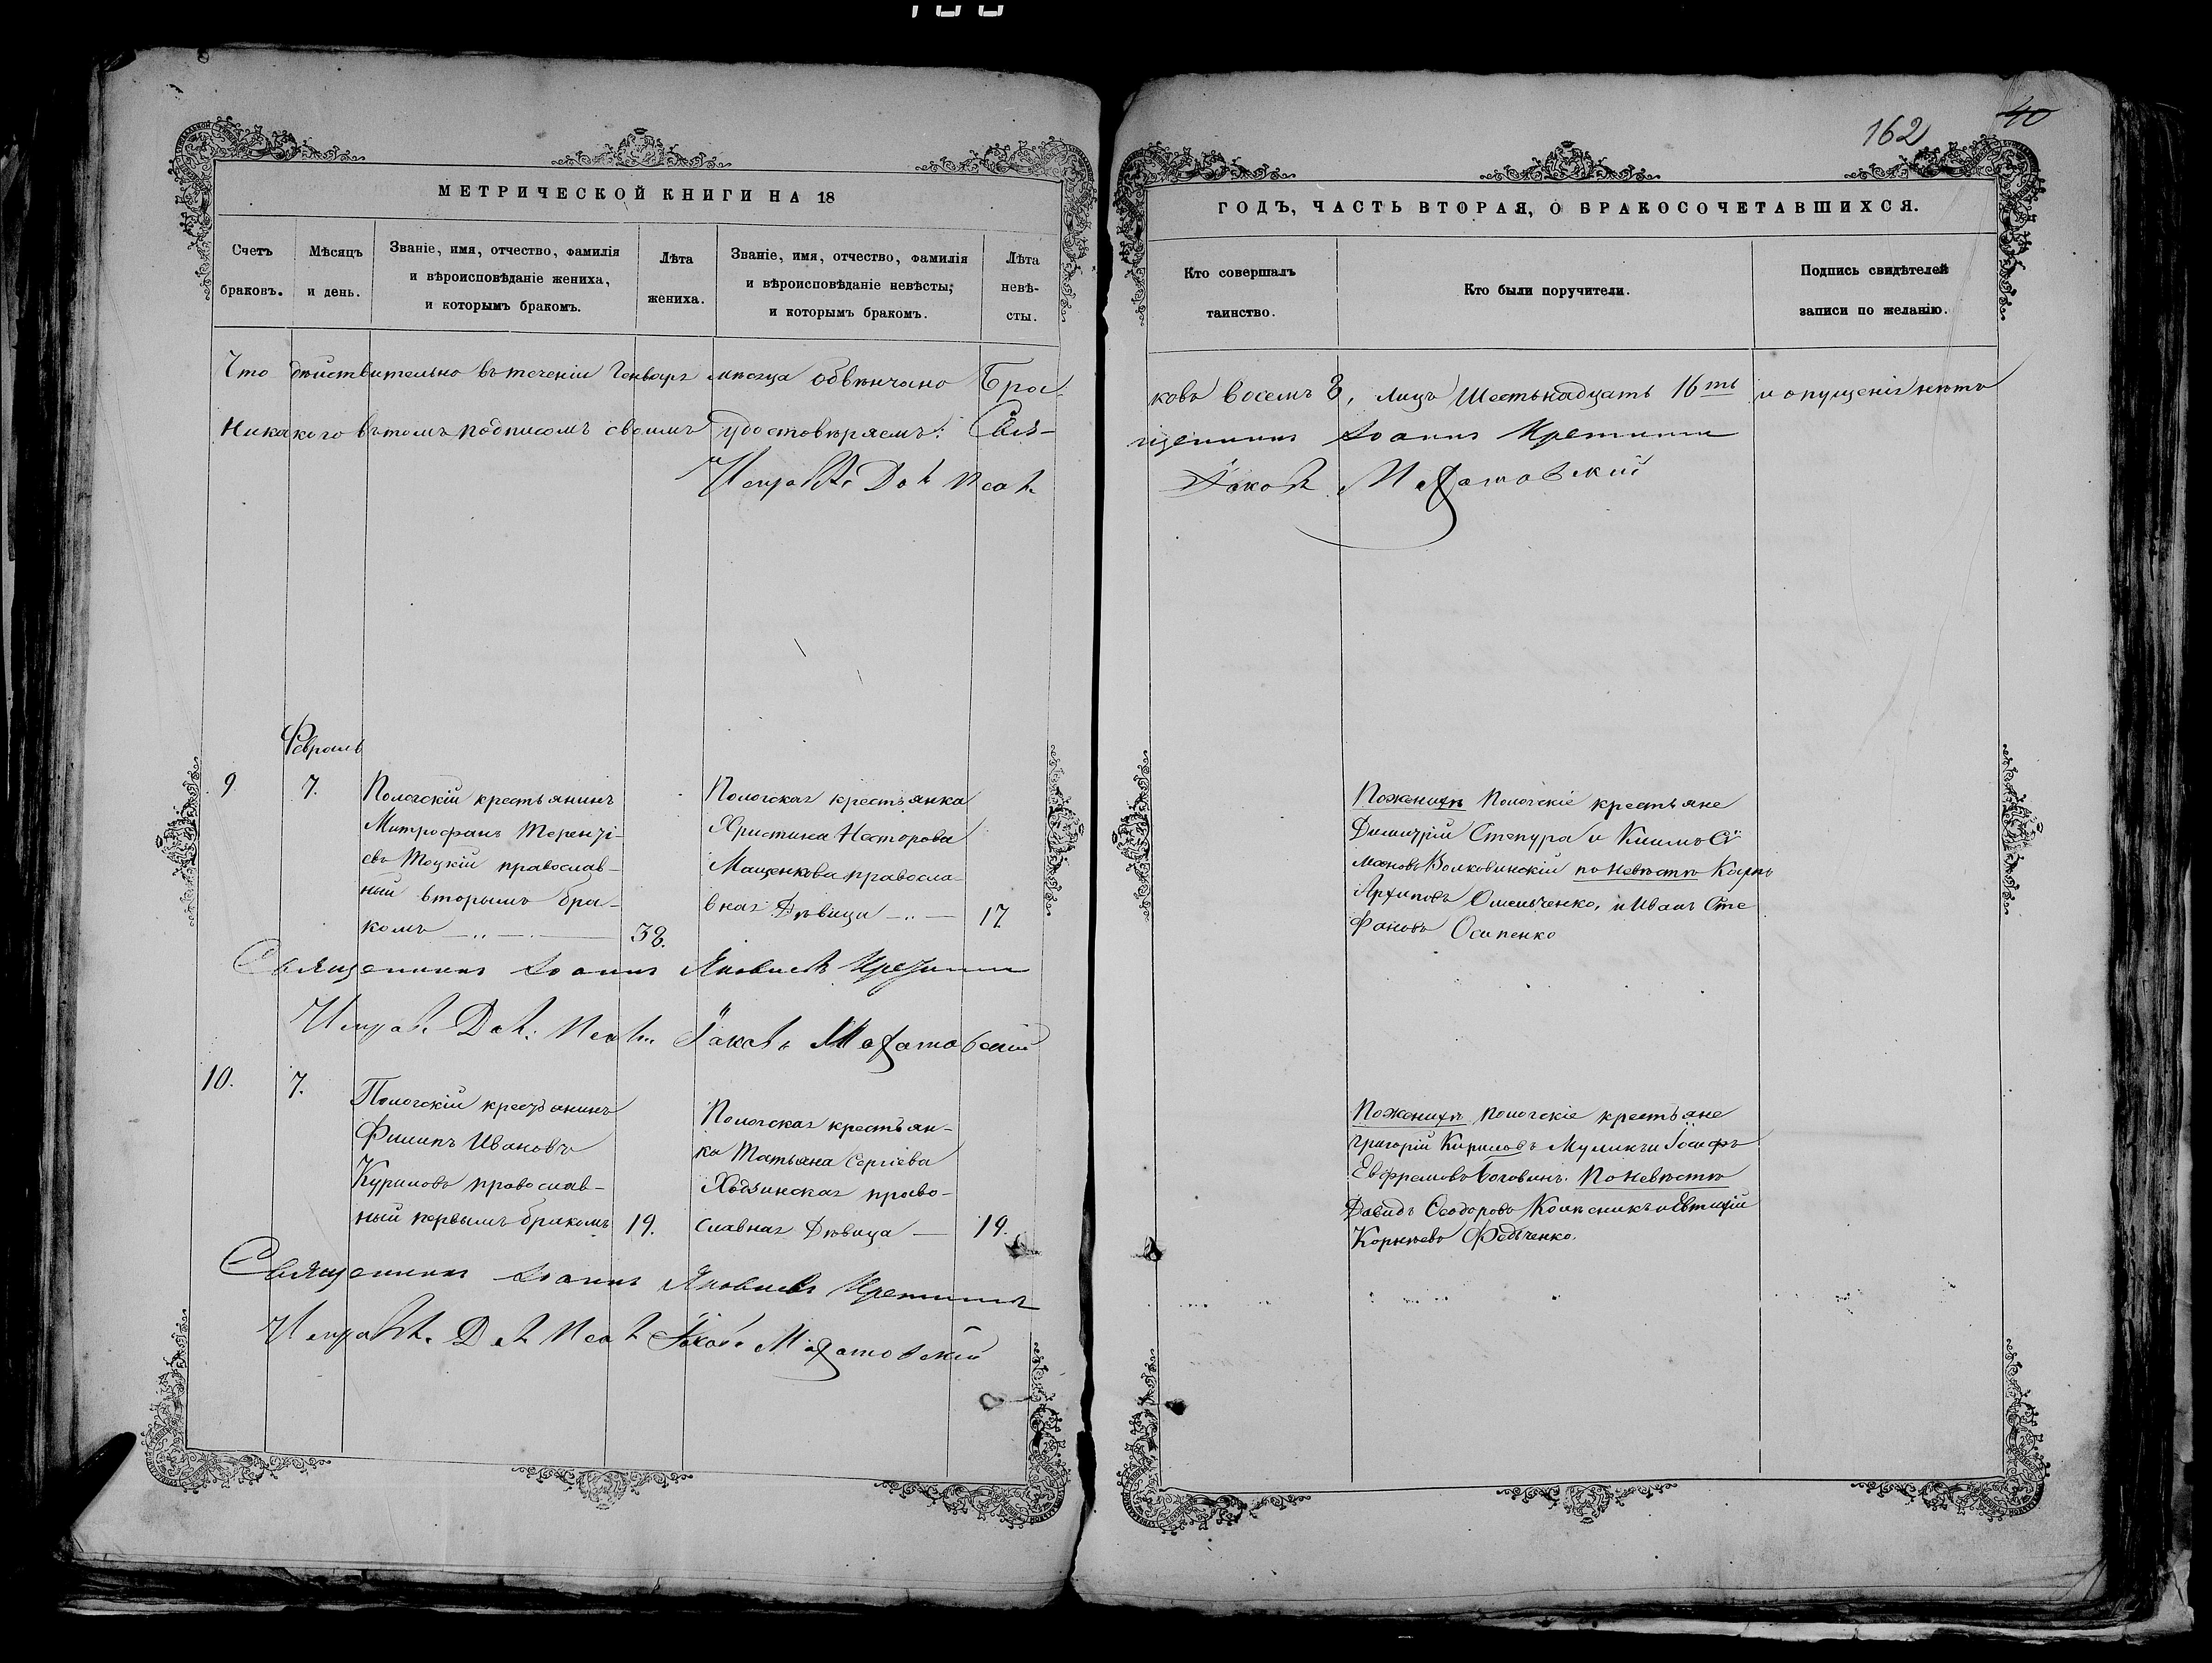 162
40
МЕТРИЧЕСКОЙ КНИГИ НА 18
ГОДЪ, ЧАСТЬ ВТОРАЯ, О БРАКОСОЧЕТАВШИХСЯ.
Счетъ браковъ.
Мѣсяцъ и день.
Званіе, имя, отчество, фамилія
и вѣроисповѣданіе жениха,
и которымъ бракомъ.
Лѣта жениха.
Званіе, имя, отчество, фамилія
и вѣроисповѣданіе невѣсты,
и которымъ бракомъ.
Лѣта невѣ-
сты.
Кто совершалъ
таинство.
Кто были поручители.
Подпись свидѣтелей
записи по желанію.
Что дѣйствительно въ теченіи Генваря мѣсяца обвѣнчано Бра-
ковъ восемъ 8, лицъ Шестьнадцать 16ть и опущенія нѣтъ
никакого въ томъ подписомъ своимъ удостовѣряемъ: Свя-
щенникъ Іоаннъ
Іаковъ
Февраль
9
7.
Пологскій крестьянинъ
Митрофанъ Терентi-
евъ Тоцкій православ-
ный вторымъ бра-
комъ
38.
Пологская крестьянка
Христина Несторова
Мащенкова правосла-
вная Дѣвица
17.
По женихѣ Пологскіе крестьяне
Димитрій Степура и Климъ Сі
мановъ Волковинскій по невѣстѣ Карпъ
Архиповъ Омельченко, и Иванъ Сте
фановъ Осипенко
Священникъ Іоаннъ Яковлевъ
Іаковъ
10.
7.
Пологскій крестьянинъ
Филипъ Ивановъ
Куриловъ православ-
ный первымъ бракомъ
19.
Пологская крестьян-
ка Татьяна Сергіева
православная Дѣвица
19.
По женихѣ пологскіе крестьяне
Григорій Кириловъ Муликъ и Іосифъ
Евфремовъ По невѣстѣ
Давидъ Ѳеодоровъ Колѣсникъ и Евтихій
Корнѣевъ Федьченко.
Священникъ Іоаннъ Яковлевъ